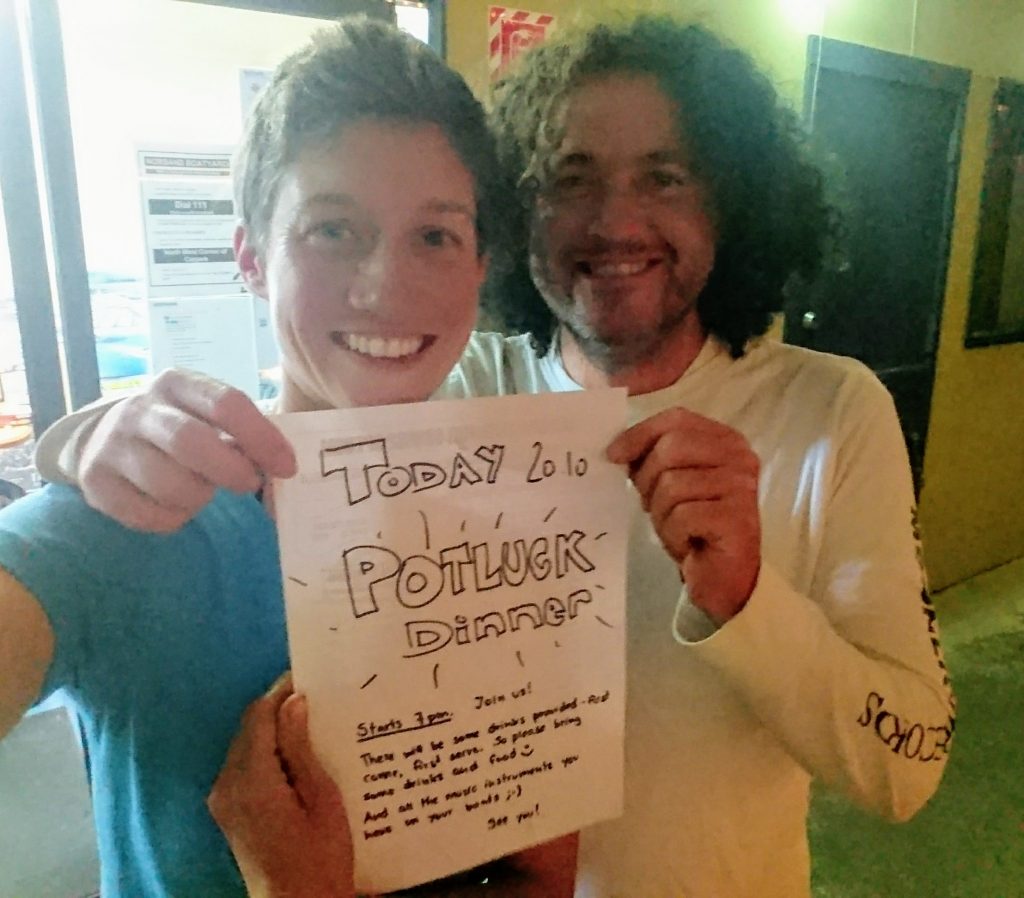 NORSAND BOATYARD
Dial 111
TODAY 20 10
POTLUCK
Dinner
Starts 7pm. Join us!
There will be some drinks provided - first
come, first serve. So please bring
some drinks and food
And all the music instruments you
have on your boats ;-)
See you!
RECORDS